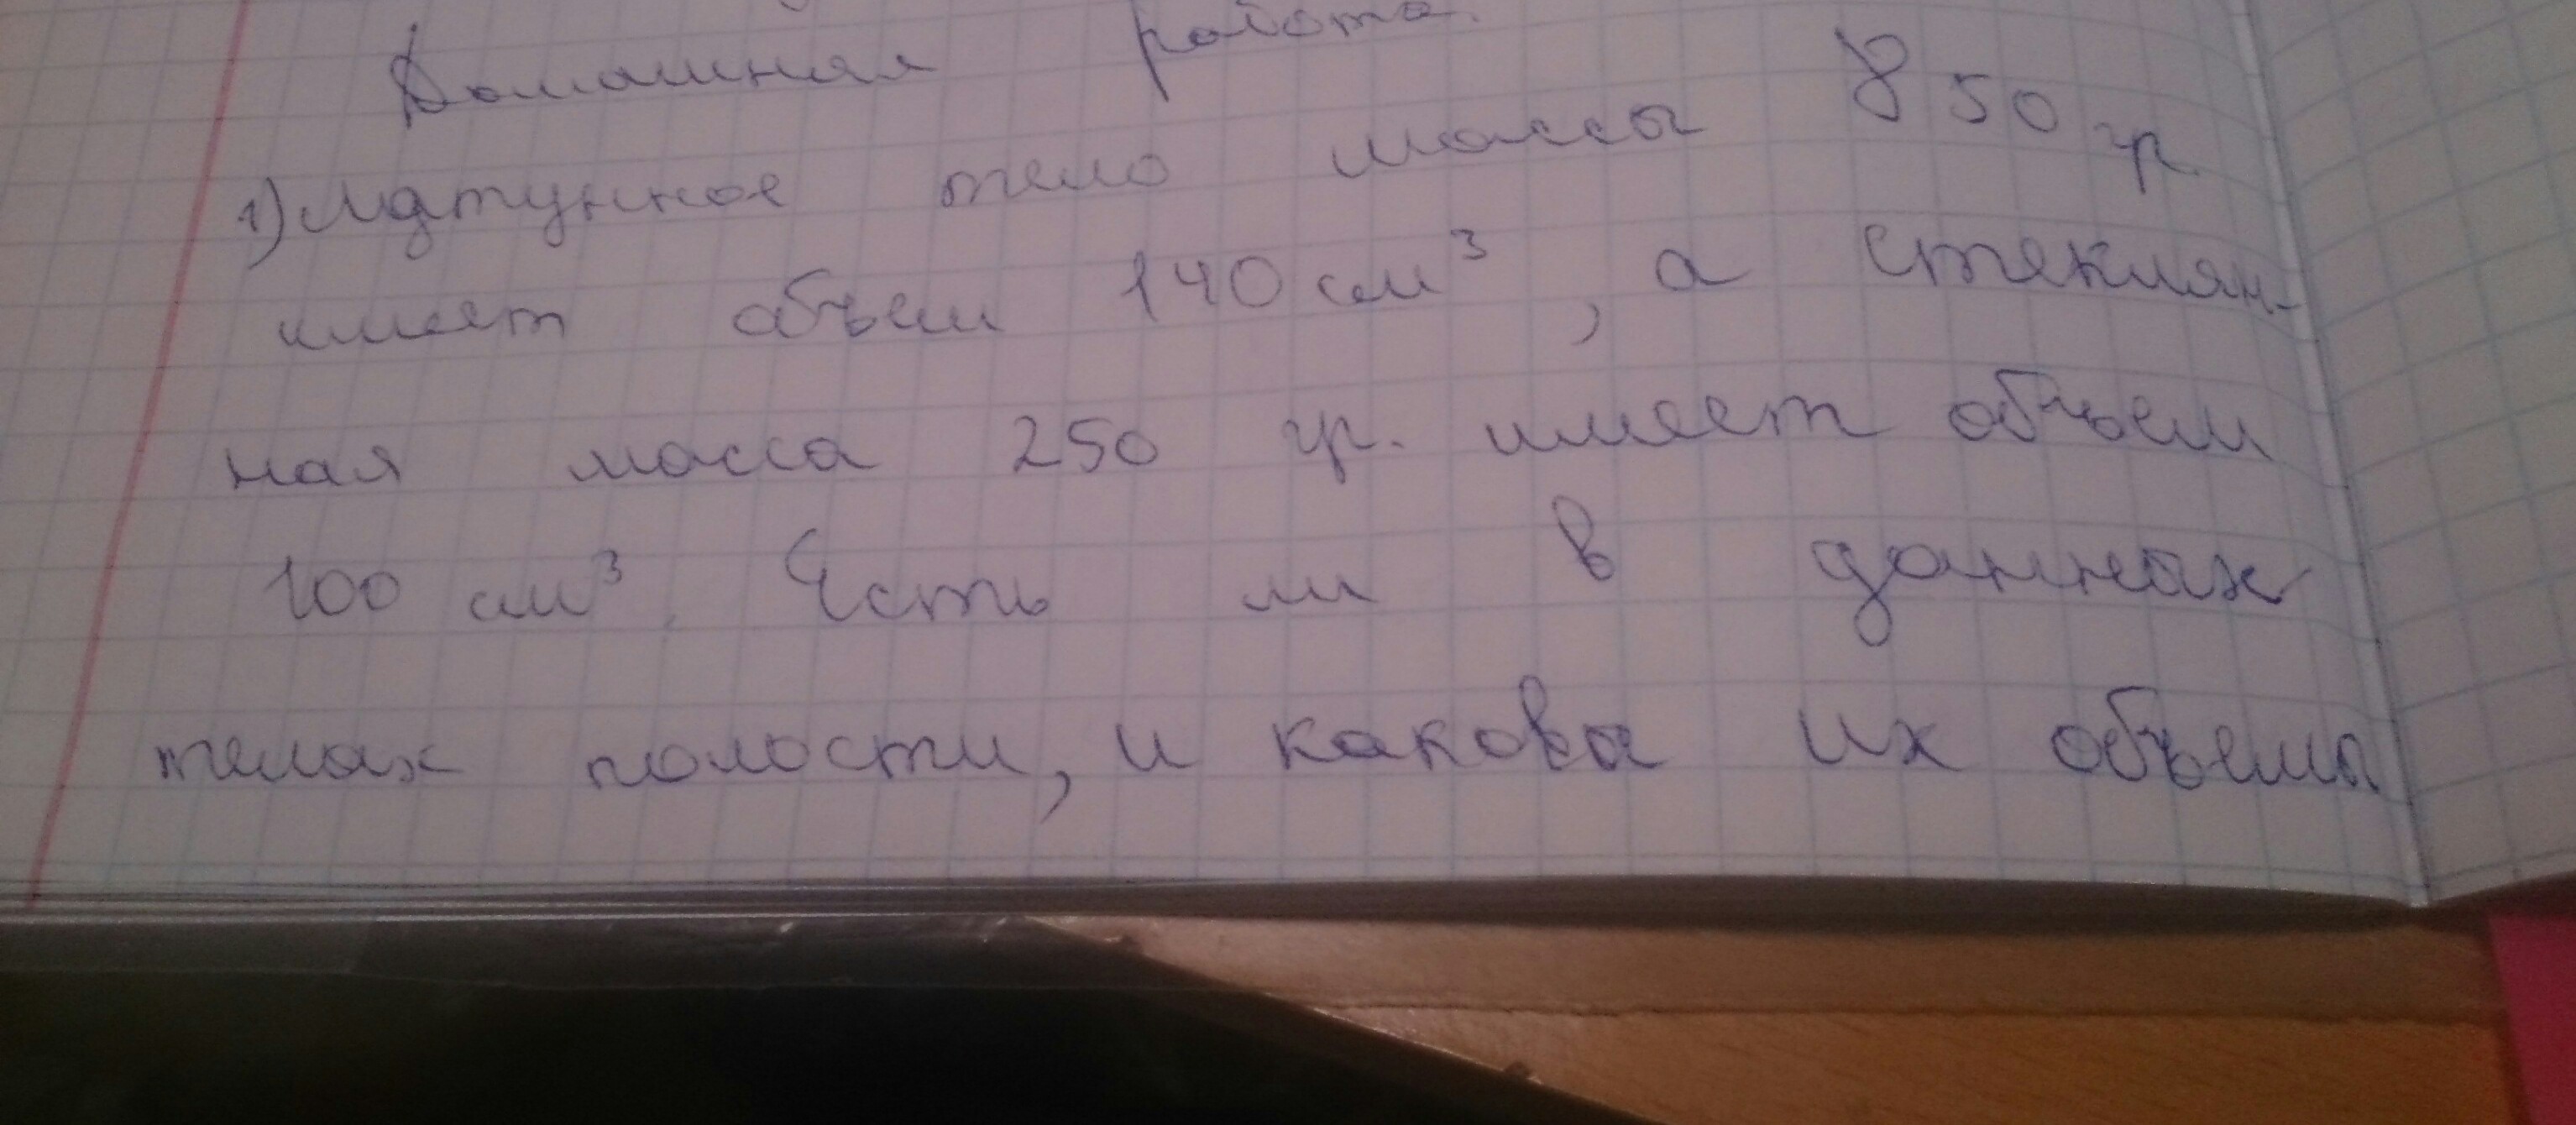 Домашняя работа.
1) Латунное тело массы 850 гр.
имеет объем 140 см³, а стеклян-
ная масса 250 гр. имеет объем
100 см³. Есть ли в данных
телах полости, и каковы их объемы